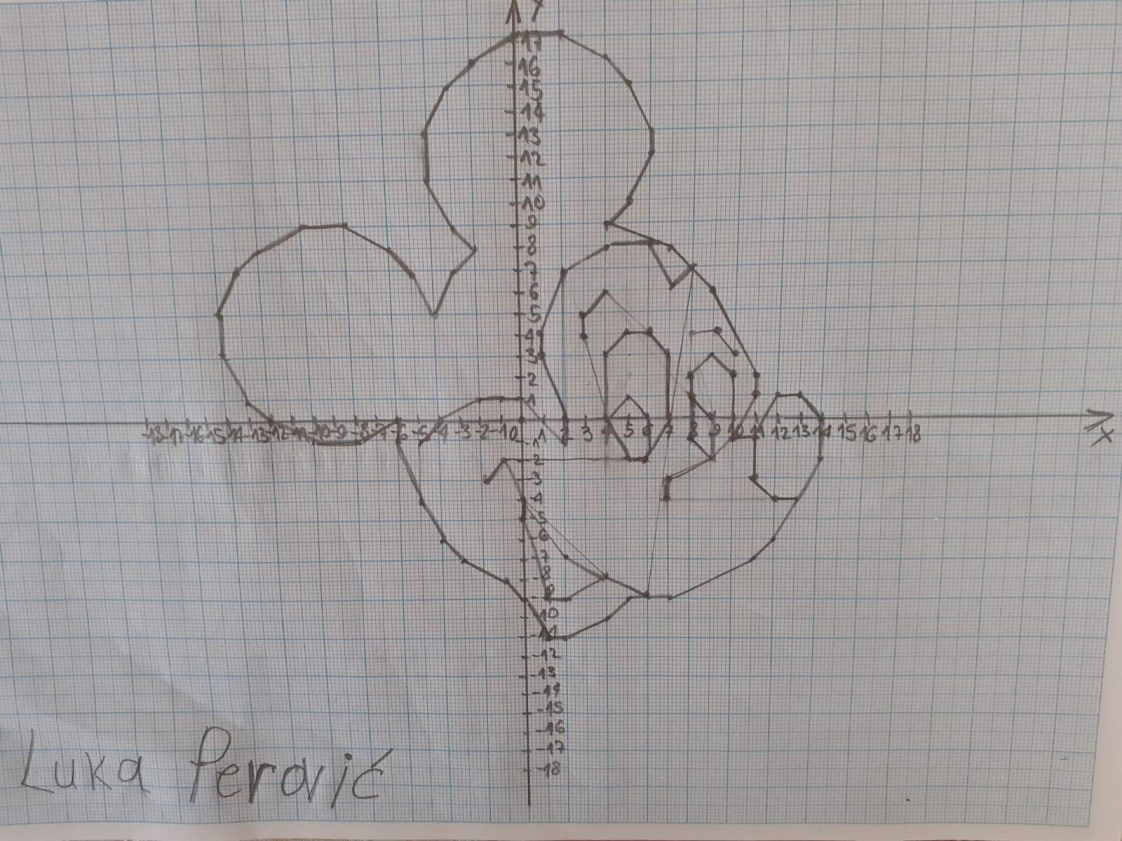 y
17
16
15
14
13
12
11
10
9
8
7
6
5
4
3
2
1
-18 -17 -16 -15 -14 -13 -12 -11 -10 -9 -8 -7 -6 -5 -4 -3 -2 -1 0 1 2 3 5 6 7 8 9 10 11 12 13 14 15 16 17 18
x
-2
-3
-4
-5
-6
-7
-8
-10
-11
-12
-13
-14
-15
-16
-17
-18
Luka Perović